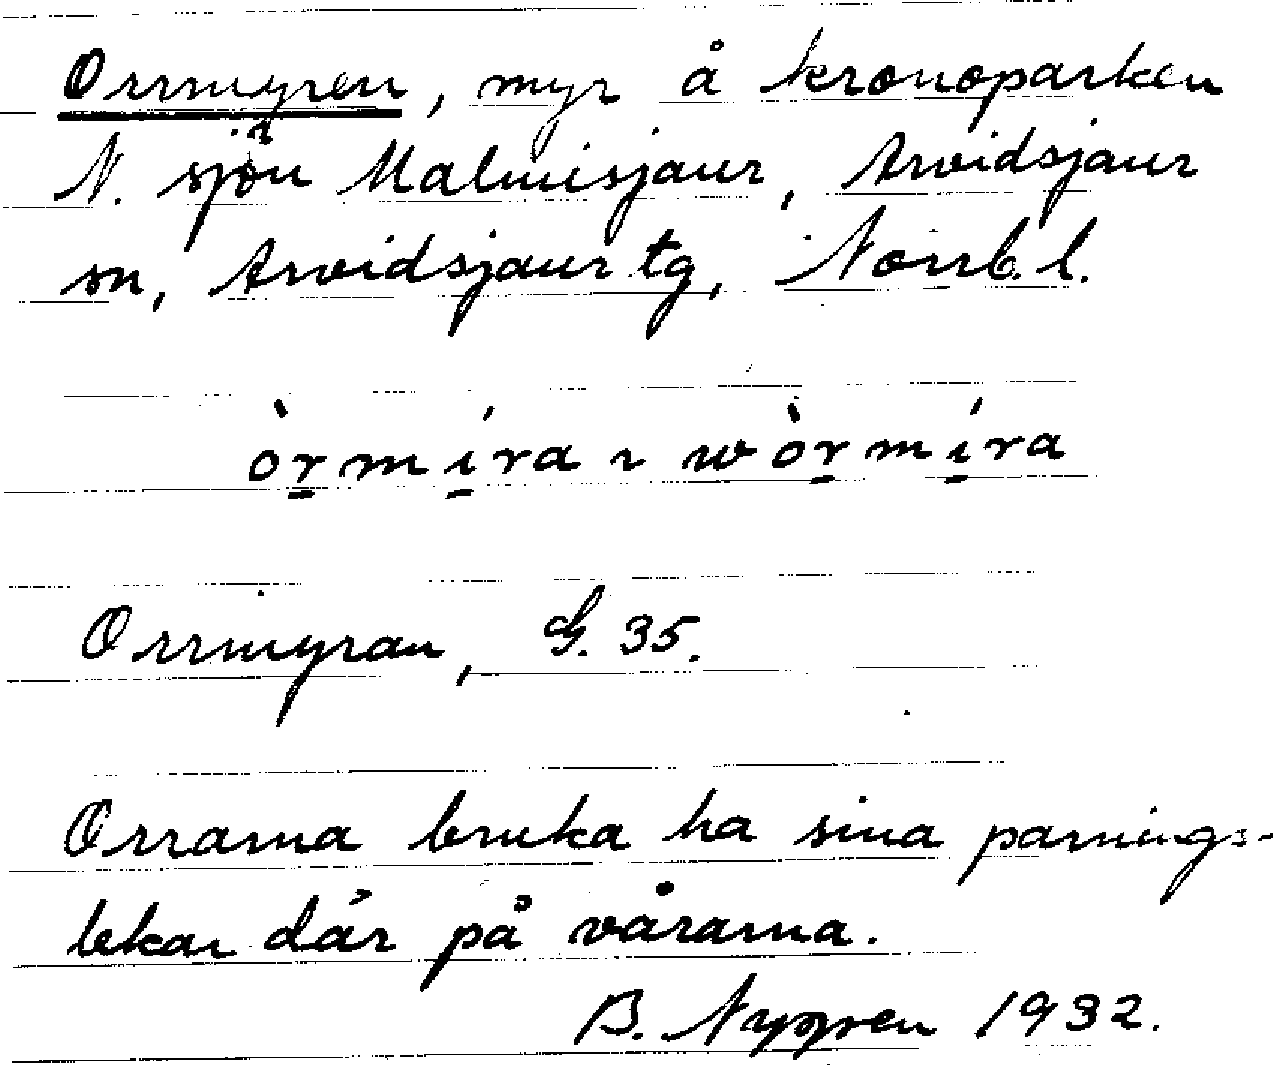 Orrmyren, myr å kronoparken
N. sjön Malmisjaur, Arvidsjaur
sn, Arvidsjaur tg, Norrb. l.
òr̠mí̠ra ~ wòr̠mí̠ra
Orrmyran, G. 35.
Orrarna bruka ha sina parnings-
lekar där på vårarna.
B. Nygren 1932.